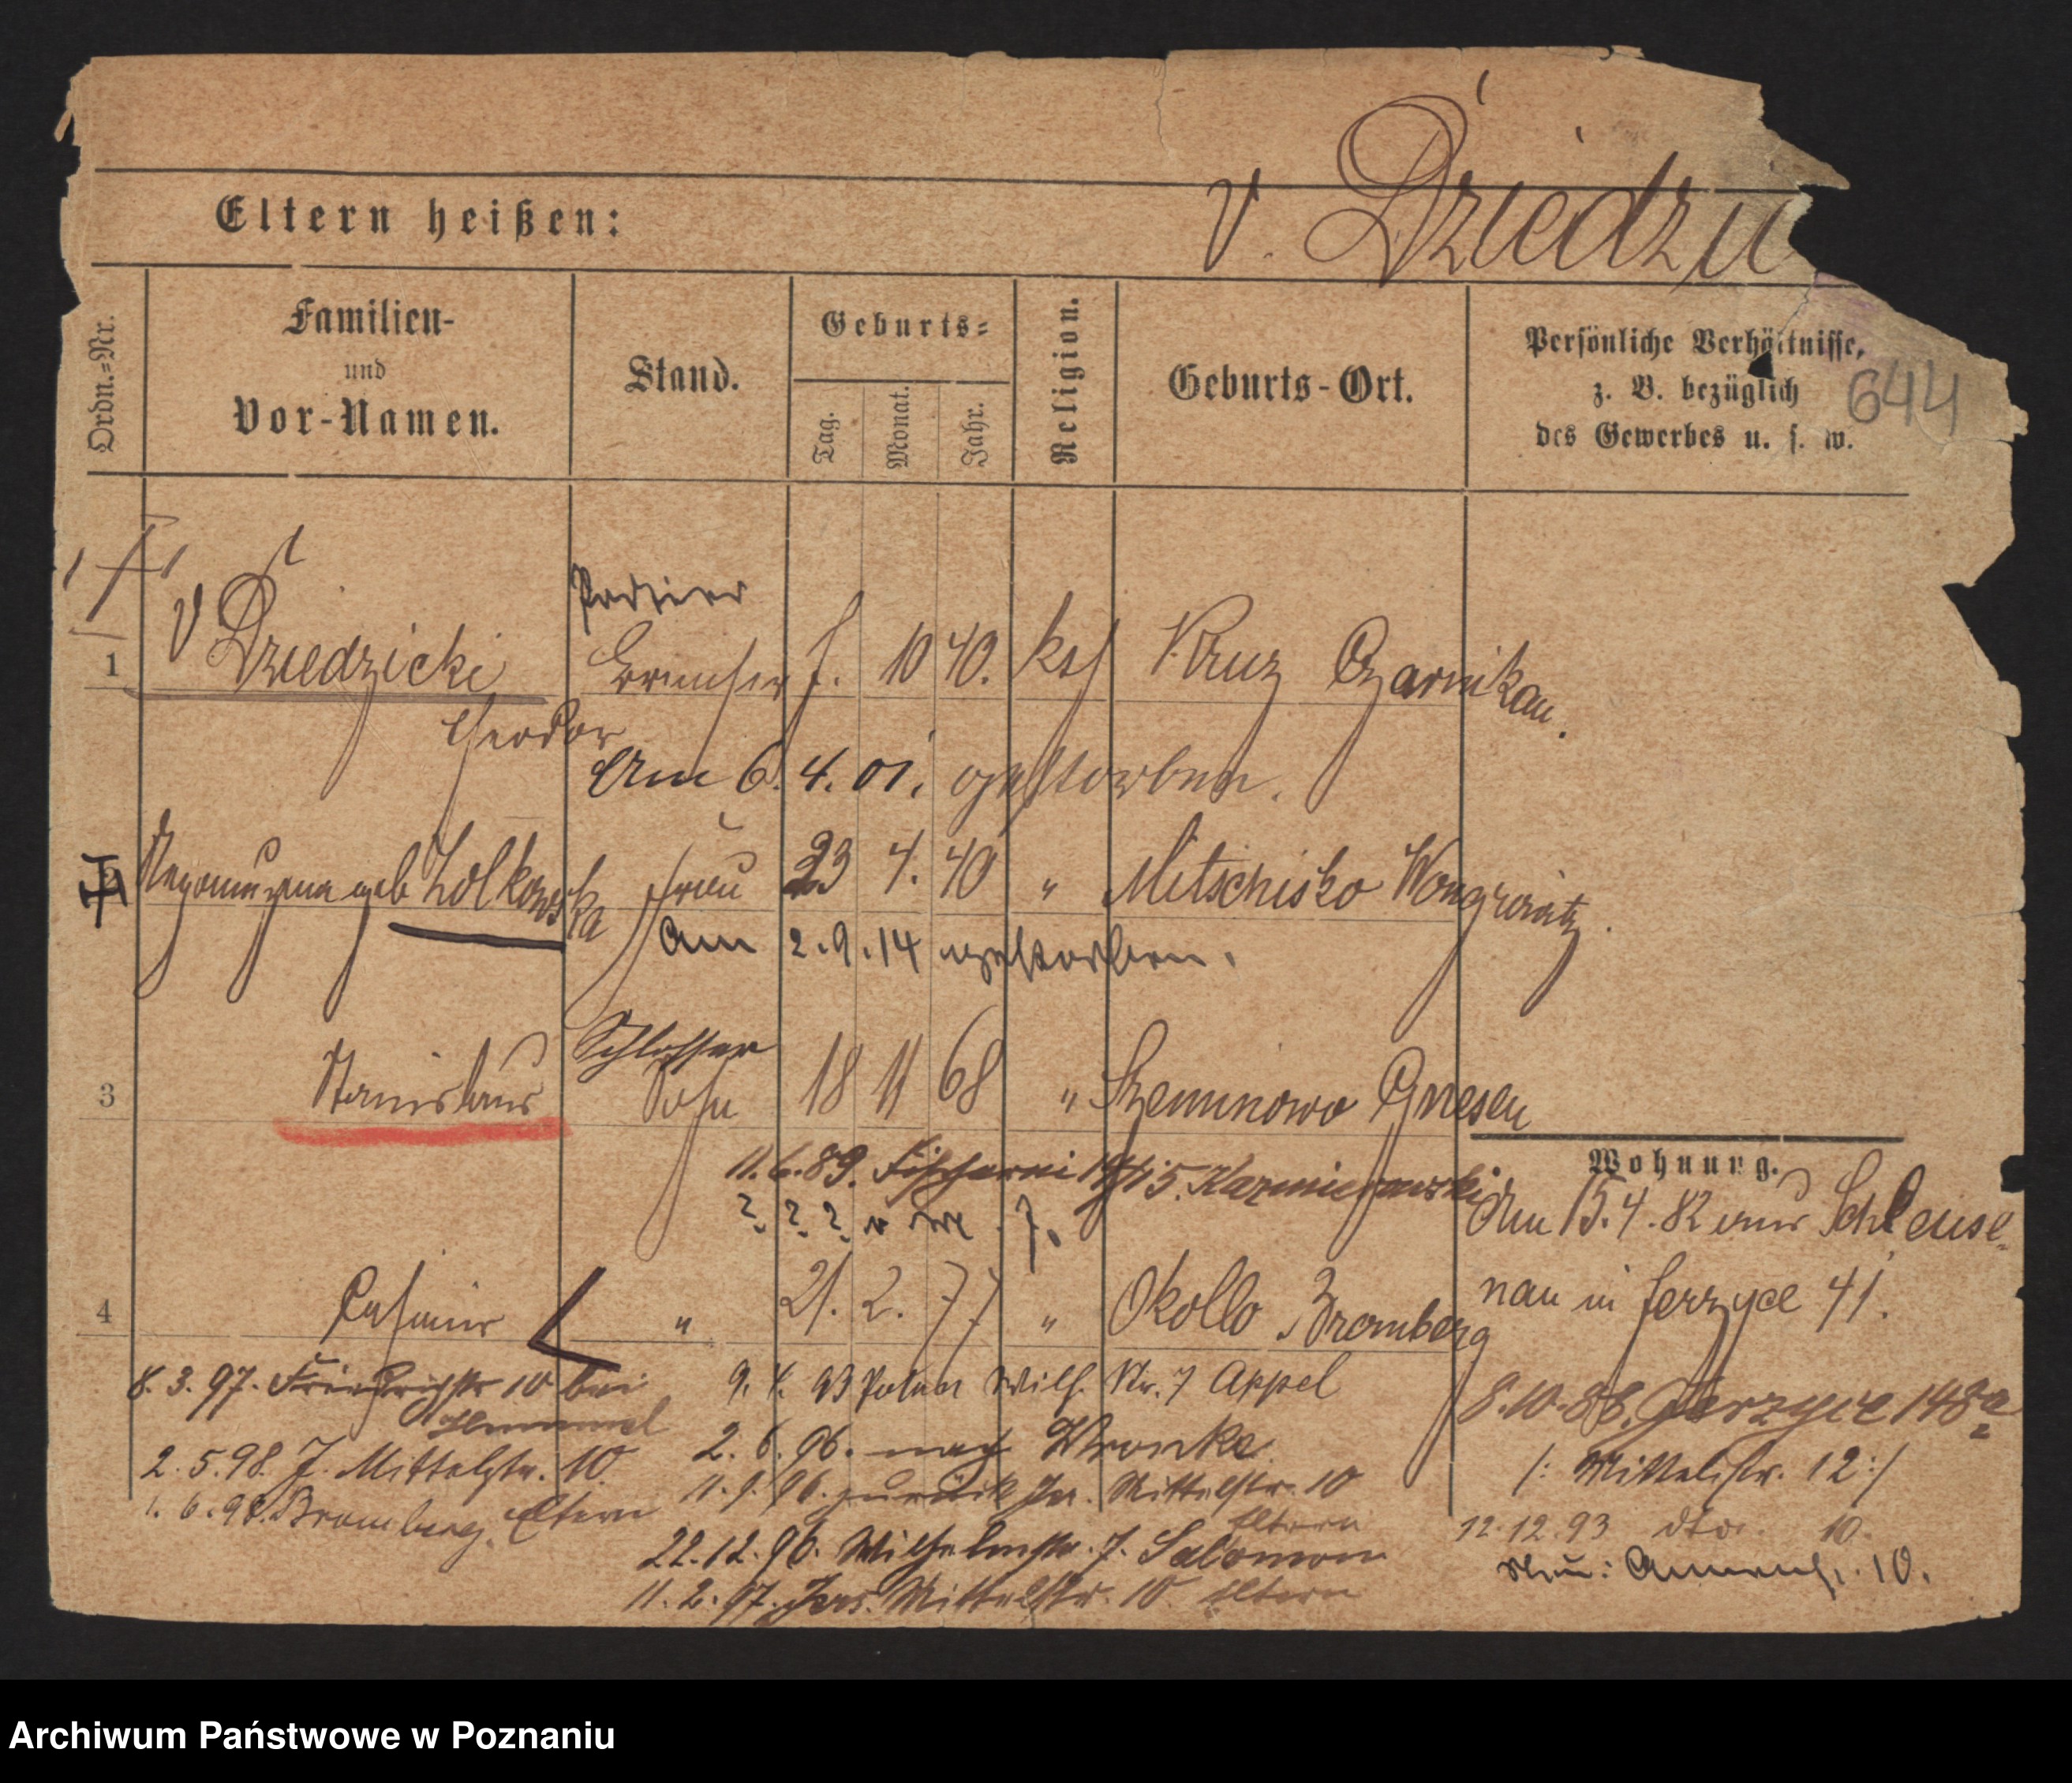 v. Dziedzi
Eltern heißen:
Ordn.-Nr.
Familien-
und
Vor-Namen.
Stand.
Geburts-
Tag.
Monat.
Jahr.
Religion.
Geburts-Ort.
Persönliche Verhältnisse,
z. B. bezüglich
des Gewerbes u. s. w.
644
Portier
1 v Dziedzicki 10 40. kath Kruz Czarnikau.
Theodor
Am 6. 4. 01. gestorben.
2 geb Zolkowska Frau 23 4. 40 " Mitschisko Wongrowitz.
Am 2.9.14 gestorben.
Schlosser
3 Stanislaus Sohn 18 11 68 " Gnesen
11.6.89. Fischerei
? ? ?
Wohnung.
Am 15.4.82 aus Schleuse-
nau in Jerzyce 41.
4 Casimir " 21. 2. 77 " Okollo Bromberg
8. 3. 97. Friedrichstr 10 bei
9. 4. 93 Posen Wilh. Str. 7 Appel
8.10.88. Jerzyce 148a
2. 6. 96. nach Wronke
/: Mittelstr. 12 :/
2. 5. 98. J. Mittelstr. 10.
11. 9. 96. zurück Jer. Mittelstr. 10
Eltern
1. 6. 98. Bromberg. Eltern
12.12.93 dto. 10.
22.12.96. Wilhelmstr. 7. Salomon
Neu: 10.
11. 2. 97. Jers. Mittelstr. 10 Eltern
Archiwum Państwowe w Poznaniu